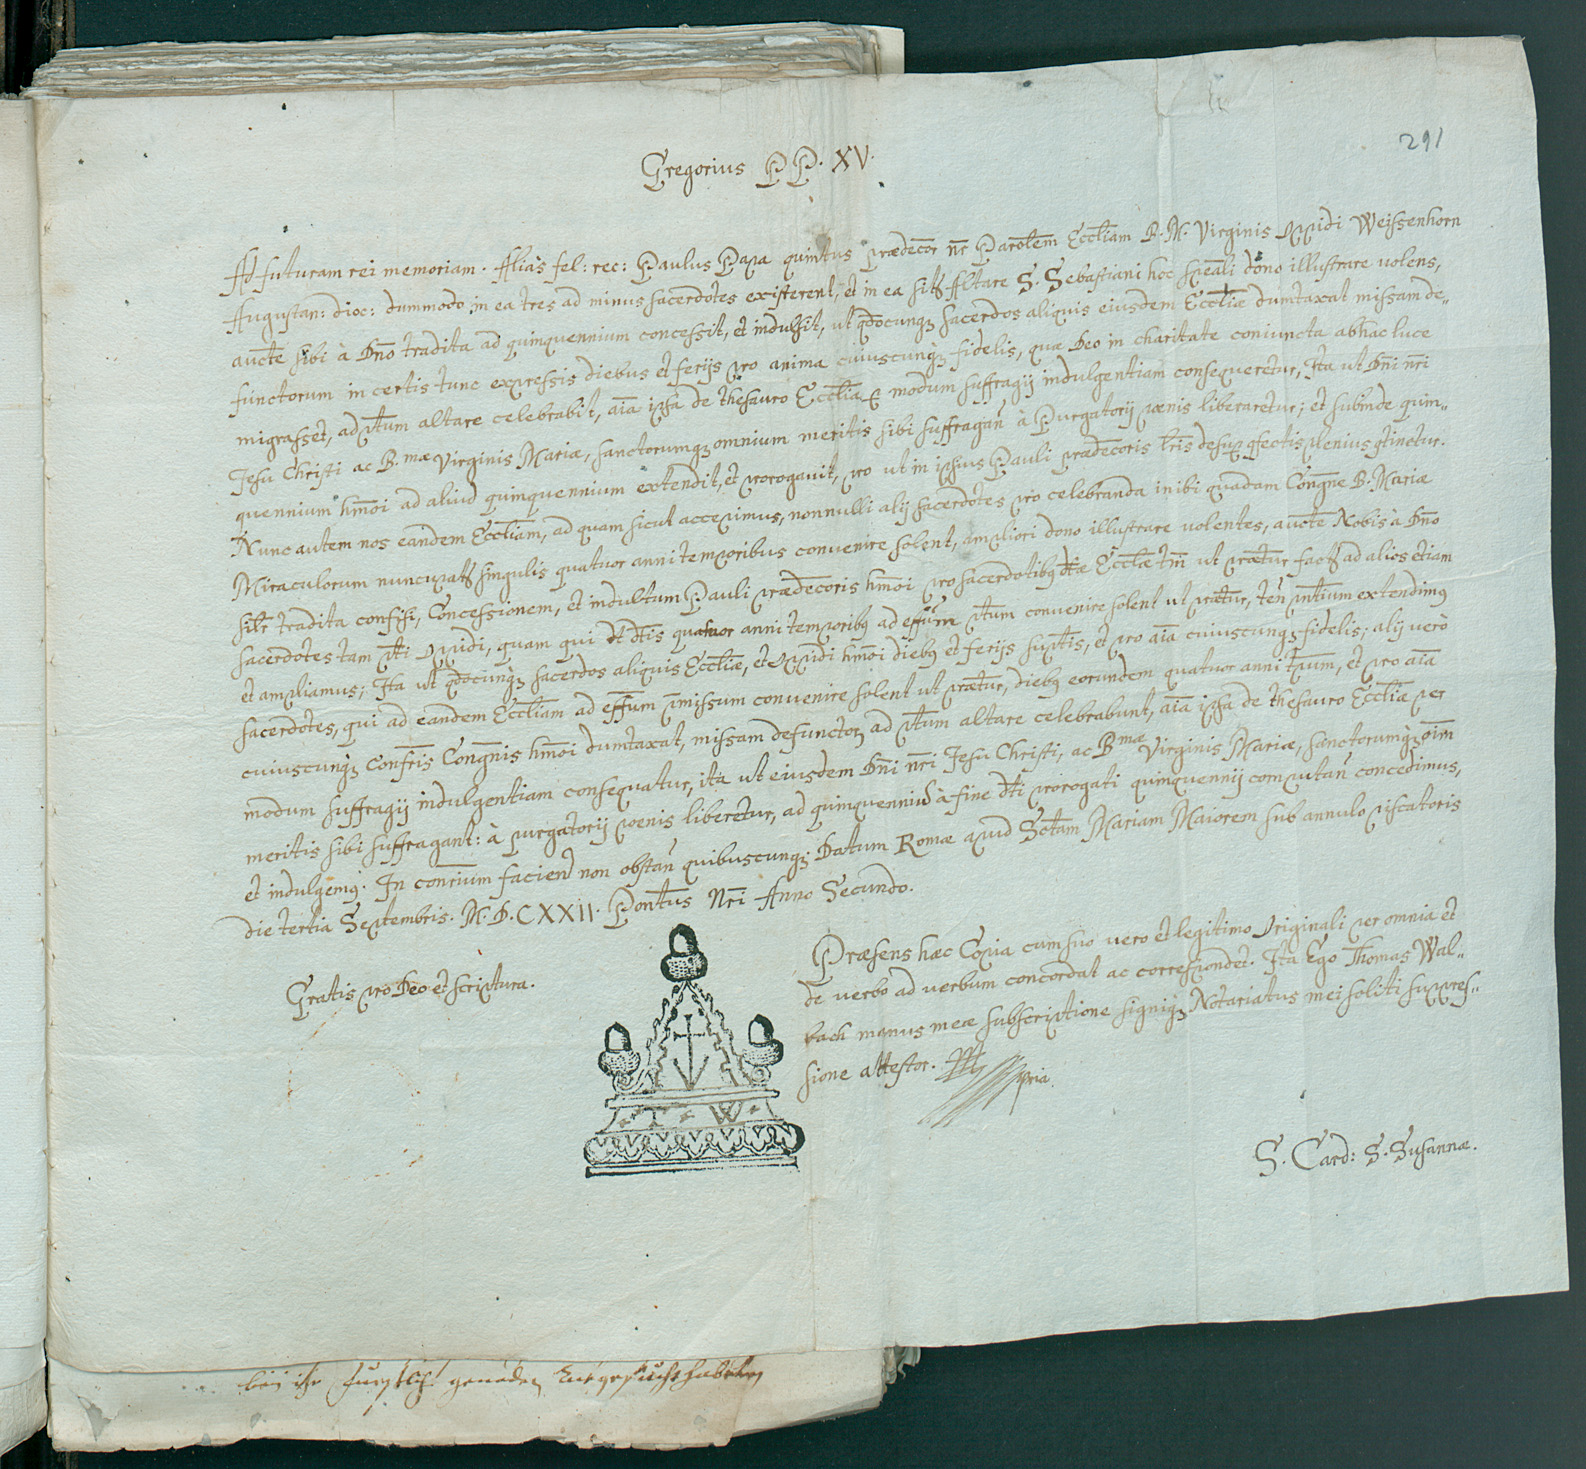 291
Gregorius PP. XV.
Ad futuram rei memoriam. Aliàs fel: rec: Paulus Papa quintus prædecor nr Parolem Eccliam B. M. Virginis oppidi Weissenhorn
Augustan: dioc: dummodo in ea tres ad minus sacerdotes existerent, et in ea Altare S. Sebastiani hoc speali dono illustrare uolens,
aucte sibi à Dno tradita ad quinquennium concessit, et indulsit, ut qdocunq sacerdos aliquis eiusdem Eccliæ dumtaxat missam de„
functorum in certis tunc expressis diebus et ferijs pro anima cuiuscunq fidelis, quæ Deo in charitate coniuncta abhac luce
migrasset, ad ptum altare celebrabit, aia ipsa de thesauro Eccliæ p modum suffragij indulgentiam consequeretur, Ita ut Dni nri
Jesu Christi ac B.mæ Virginis Mariæ, sanctorumq omnium meritis sibi suffragan à Purgatorij pœnis liberaretur; et subinde quin„
quennium hmoi ad aliud quinquennium extendit, et prorogauit, pro ut in ipsius Pauli prædecoris lris desup cfectis plenius ctinetur.
Nunc autem nos eandem Eccliam, ad quam sicut accepimus, nonnulli alij sacerdotes pro celebranda inibi quadam Congne B. Mariæ
Miraculorum nuncupat singulis quatuor anni temporibus convenire solent, ampliori dono illustrare uolentes, aucte Nobis à Dno
silr tradita confisi, Concessionem, et indultum Pauli prædecoris hmoi pro sacerdotibq dtæ Eccliæ tm ut prætur fact ad alios etiam
sacerdotes tam pti oppidi, quam qui dt dtis quatuor anni temporibq ad effum ptum convenire solent ut prætur, ten pntium extendimq
et ampliamus; Ita ut qdocunq sacerdos aliquis Eccliæ, et oppidi hmoi diebq et ferijs suptis, et pro aia cuiuscunq fidelis; alij verò
sacerdotes, qui ad eandem Eccliam ad effum pmissum convenire solent ut prætur, diebq eorundem quatuor anni tpum, et pro aia
cuiuscunq confris Congnis hmoi dumtaxat, missam defunctor ad ptum altare celebrabunt, aia ipsa de thesauro Eccliæ per
modum suffragij indulgentiam consequatur, ita ut eiusdem Dni nri Jesu Christi, ac B.mæ Virginis Mariæ, sanctorumq oim
meritis sibi suffragant: à purgatorij pœnis liberetur, ad quinquenniu à fine dti prorogati quinquennij computan concedimus,
et indulgemq. In conrium facien non obstan quibuscunq. Datum Romæ apud Sctam Mariam Maiorem sub annulo piscatoris
die tertia Septembris. M. D. CXXII. Pontus Nri Anno Secundo.
Gratis pro Deo et scriptura.
Præsens hæc Copia cum suo vero et legitimo Originali per omnia et
de verbo ad verbum concordat ac correspondet. Ita Ego Thomas Wal„
bach manus meæ subscriptione signiq Notariatus mei soliti suppres„
sione attestor. ppria
T W
S. Card: S. Susannæ.